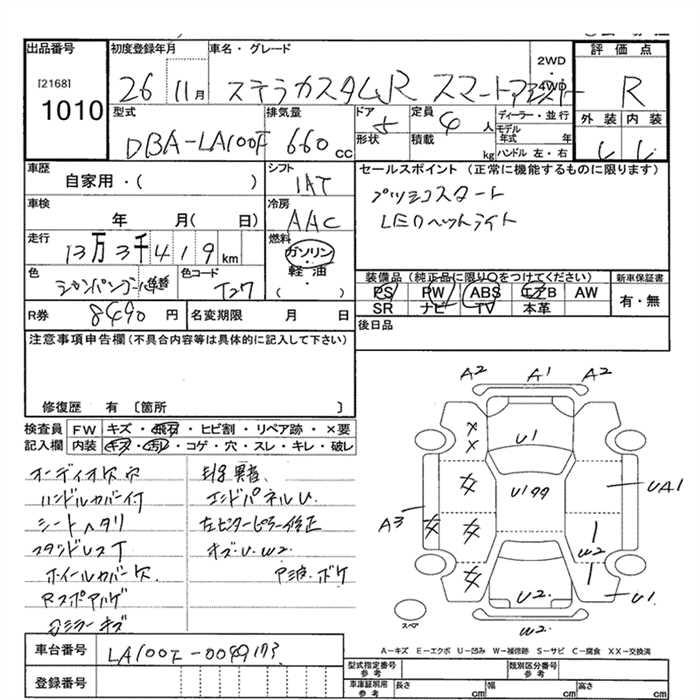 出品番号
[2168]
1010
初度登録年月
26 11月
車名・グレード
ステラカスタムR スマートアシスト
2WD
4WD
評価点
R
外装 内装
型式
DBA-LA100F
排気量
660 cc
ドア
5
形状
定員
4 人
積載
kg
ディーラー・並行
モデル年式 年
ハンドル 左・右
車歴
自家用・( )
シフト
IAT
車検
年 月( 日)
冷房
AAC
走行
13万3千419km
燃料
ガソリン・軽油
( )
色
色コード
T27
R券
8490 円
名変期限 月 日
セールスポイント (正常に機能するものに限ります)
プッシュスタート
LEDヘッドライト
装備品 (純正品に限り○をつけてください)
PS PW ABS エアB AW
SR ナビ TV 本革
新車保証書
有・無
後日品
注意事項申告欄 (不具合内容等は具体的に記入して下さい)
修復歴 有 〔箇所 〕
検査員記入欄
FW キズ・飛石・ヒビ割・リペア跡・×要
内装 キズ・汚レ・コゲ・穴・スレ・キレ・破レ
オーディオ欠 穴
ハンドルカバー付
シートヘタリ
スタッドレスT
ホイールカバー欠
Rスポアルゲ
ミラーキズ
エンドパネルU.
左センターピラー修正
キズ・U・W2.
A2 A1 A2
U1
U199
UA1
A3
W2
U1
U2.
W2.
スペア
A-キズ E-エクボ U-凹み W-補修跡 S-サビ C-腐食 XX-交換済
車台番号
LA100F-0099173
登録番号
型式指定番号
参考
類別区分番号
参考
車庫証明用
参考
長さ cm
幅 cm
高さ cm